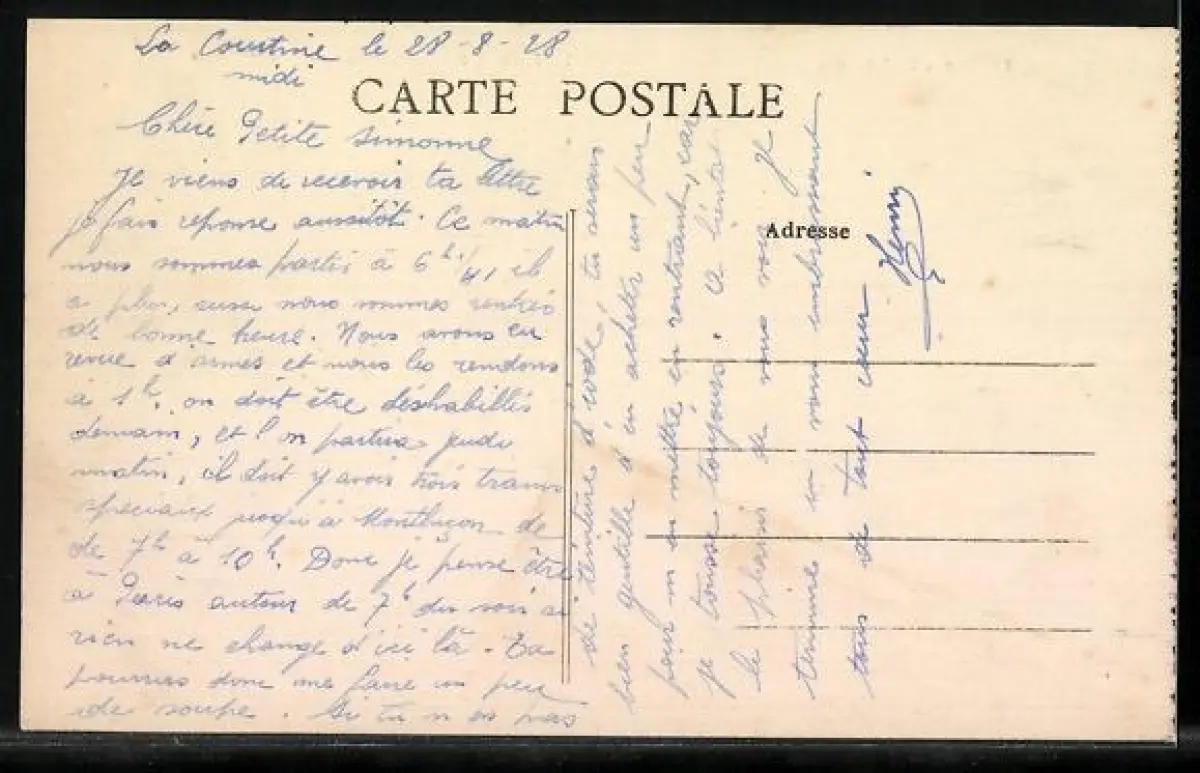 La Courtine le 28-8-28
midi
CARTE POSTALE
Chère Petite Simonne
Je viens de recevoir ta lettre
je fais reponse aussitôt. Ce matin
nous sommes partis à 6h 1/4, il
a plu, aussi nous sommes rentrés
de bonne heure. Nous avons eu
revue d'armes et nous les rendons
à 1h. on doit être déshabillés
demain, et l'on partira jeudi
matin, il doit y avoir trois trains
speciaux jusqu'à Montluçon de
de 7h à 10h. Donc je pense être
à Paris autour de 7h du soir si
rien ne change d'ici là. Ta
pourras donc me faire un peu
de soupe. Si tu n'as pas
de teinture d'iode, tu serais
bien gentille d'en acheter un peu
pour m'en mettre en rentrant, car
je tousse toujours. A bientôt
le plaisir de vous voir. Je
termine en vous embrassant
tous de tout cœur
Henri
Adresse